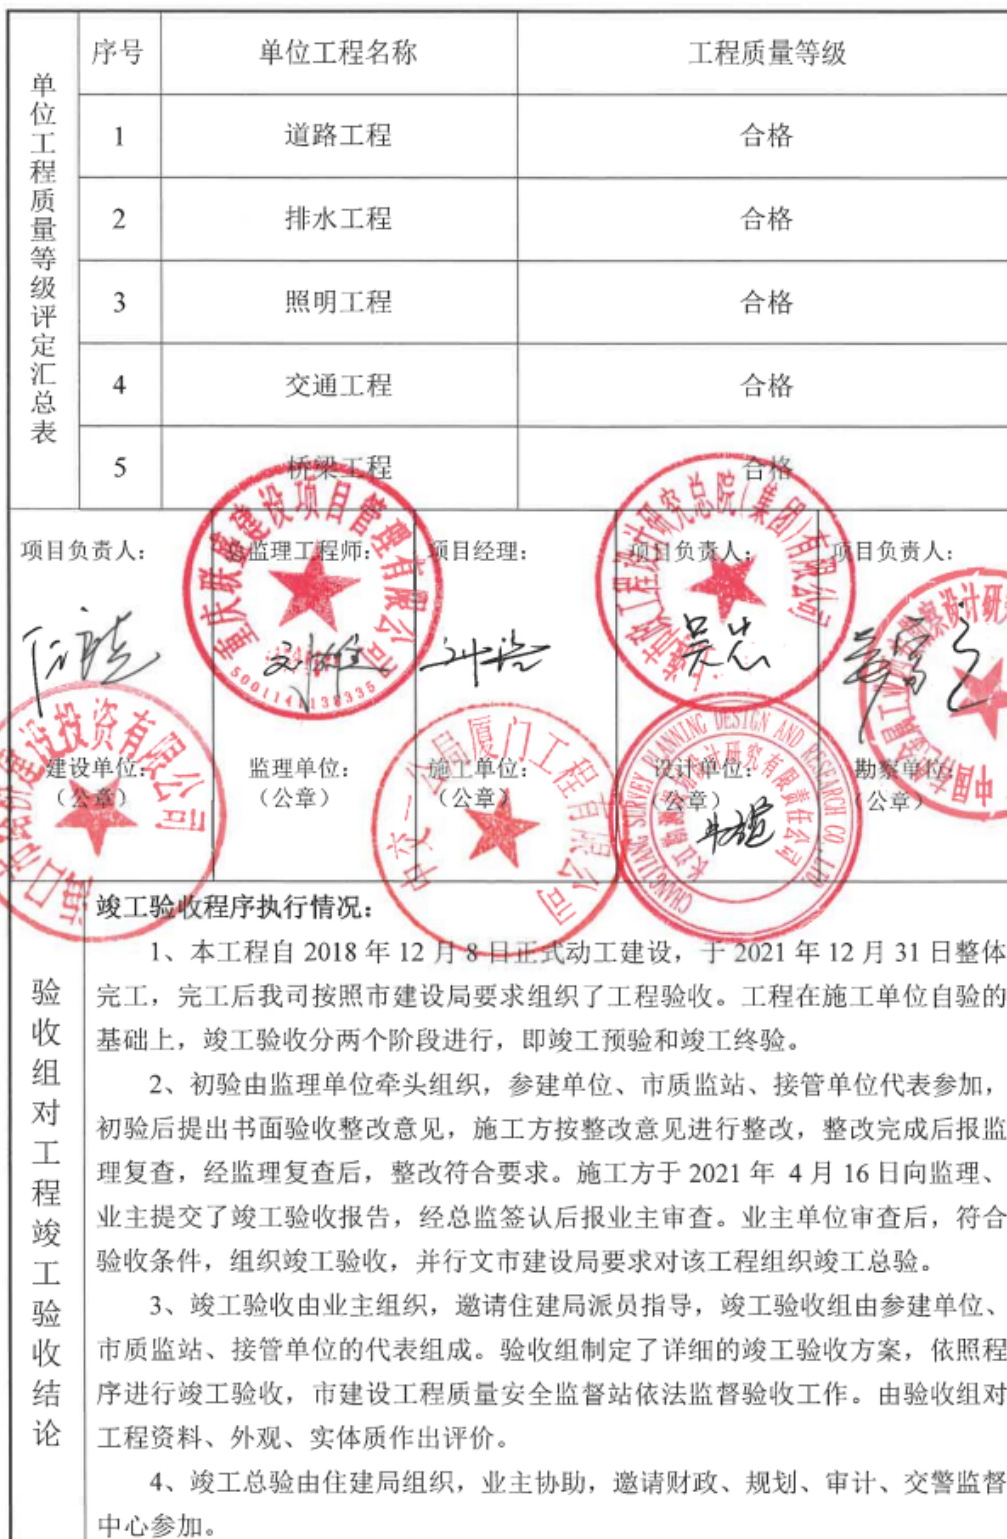 单位工程质量等级评定汇总表
序号 单位工程名称 工程质量等级
1 道路工程 合格
2 排水工程 合格
3 照明工程 合格
4 交通工程 合格
5 桥梁工程 合格
项目负责人： 总监理工程师： 项目经理： 项目负责人： 项目负责人：
重庆联盛建设项目管理有限公司
市政工程设计研究总院（集团）有限公司
吴忠
建设单位： 监理单位： 施工单位： 设计单位： 勘察单位：
（公章） （公章） （公章） （公章） （公章）
中交一公局厦门工程有限公司
CHANGJIANG SURVEY PLANNING DESIGN AND RESEARCH CO., LTD
验收组对工程竣工验收结论
竣工验收程序执行情况：
1、本工程自 2018 年 12 月 8 日正式动工建设，于 2021 年 12 月 31 日整体
完工，完工后我司按照市建设局要求组织了工程验收。工程在施工单位自验的
基础上，竣工验收分两个阶段进行，即竣工预验和竣工终验。
2、初验由监理单位牵头组织，参建单位、市质监站、接管单位代表参加，
初验后提出书面验收整改意见，施工方按整改意见进行整改，整改完成后报监
理复查，经监理复查后，整改符合要求。施工方于 2021 年 4 月 16 日向监理、
业主提交了竣工验收报告，经总监签认后报业主审查。业主单位审查后，符合
验收条件，组织竣工验收，并行文市建设局要求对该工程组织竣工总验。
3、竣工验收由业主组织，邀请住建局派员指导，竣工验收组由参建单位、
市质监站、接管单位的代表组成。验收组制定了详细的竣工验收方案，依照程
序进行竣工验收，市建设工程质量安全监督站依法监督验收工作。由验收组对
工程资料、外观、实体质作出评价。
4、竣工总验由住建局组织，业主协助，邀请财政、规划、审计、交警监督
中心参加。